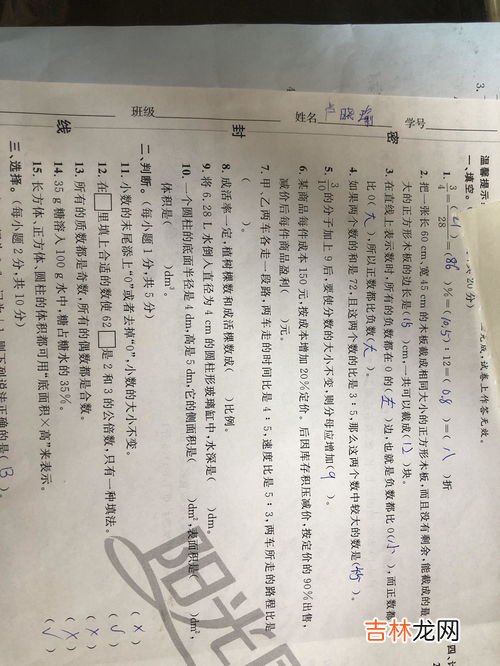 班级
姓名
学号
线
封
密
温馨提示:
试卷上作答无效。
一、填空。
共20分)
1. 3/4=( )/28=(86)%=(10.5):12=(0.8)=(八)折
2. 把一张长60 cm,宽45 cm的木板截成相同大小的正方形木板,而且没有剩余,能截成的最
大的正方形木板的边长是(15)cm,一共可以截成(12)块。
3. 在直线上表示数时,所有的负数都在0的(左)边,也就是负数都比0(小),而正数都
比0(大),所以正数都比负数(大)。
4. 如果两个数的和是72,且这两个数的比是3∶5,那么这两个数中较大的数是(45)。
5. 3/10的分子加上9后,要使分数的大小不变,则分母应增加(9)。
6. 某商品每件成本150元,按成本增加20%定价。后因库存积压减价,按定价的90%出售,
减价后每件商品盈利( )元。
7. 甲、乙两车各走一段路,两车走的时间比是4∶5,速度比是5∶3,两车所走的路程比是
( )。
8. 成活率一定,植树棵数和成活棵数成( )比例。
9. 将6.28 L水倒入直径为4 cm的圆柱形玻璃缸中,水深是( )dm。
10. 一个圆柱的底面半径是4 dm,高是5 dm,它的侧面积是( )dm²,表面积是( )dm²,
体积是( )dm³。
二、判断。(每小题1分,共5分)
11. 小数的末尾添上“0”或者去掉“0”,小数的大小不变。 (×)
12. 在□里填上合适的数使62□是2和3的公倍数,只有一种填法。 (√)
13. 所有的质数都是奇数,所有的偶数都是合数。 (×)
14. 35 g糖溶入100 g水中,糖占糖水的35%。 (×)
15. 长方体、正方体、圆柱的体积都可用“底面积×高”来表示。 (√)
三、选择。(每小题2分,共10分)
则下列说法正确的是(B)。
阳光网
吉林龙网